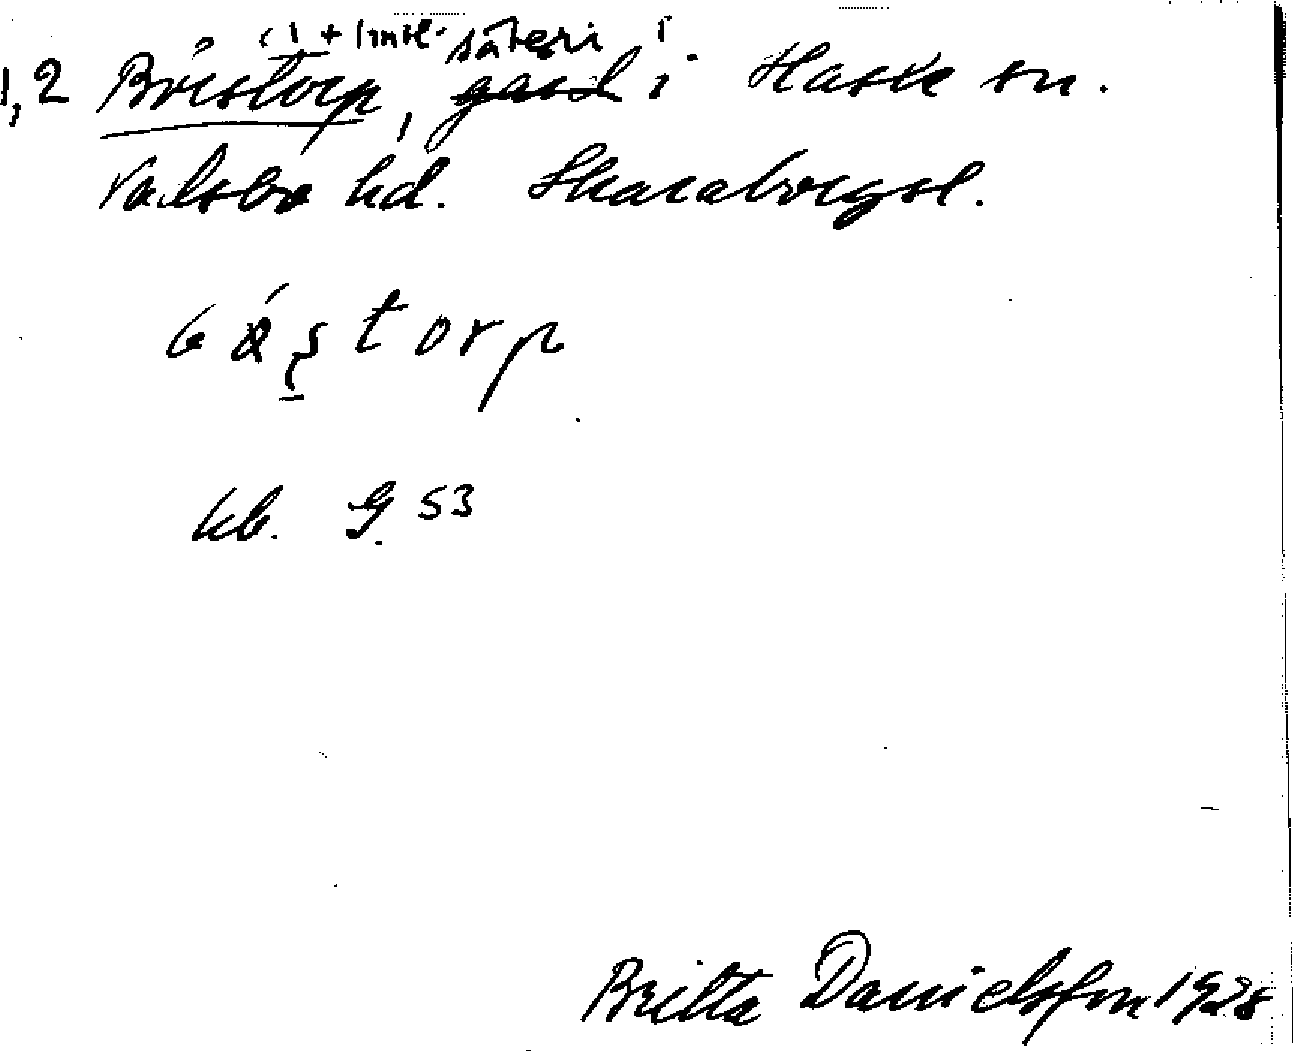 (1 + 1 mtl. säteri
1,2 Börstorp, gård i Hasle sn.
Valsbo hd. Skaraborgsl.
bǿstorp
kb. G 53
Britta Danielsson 1928